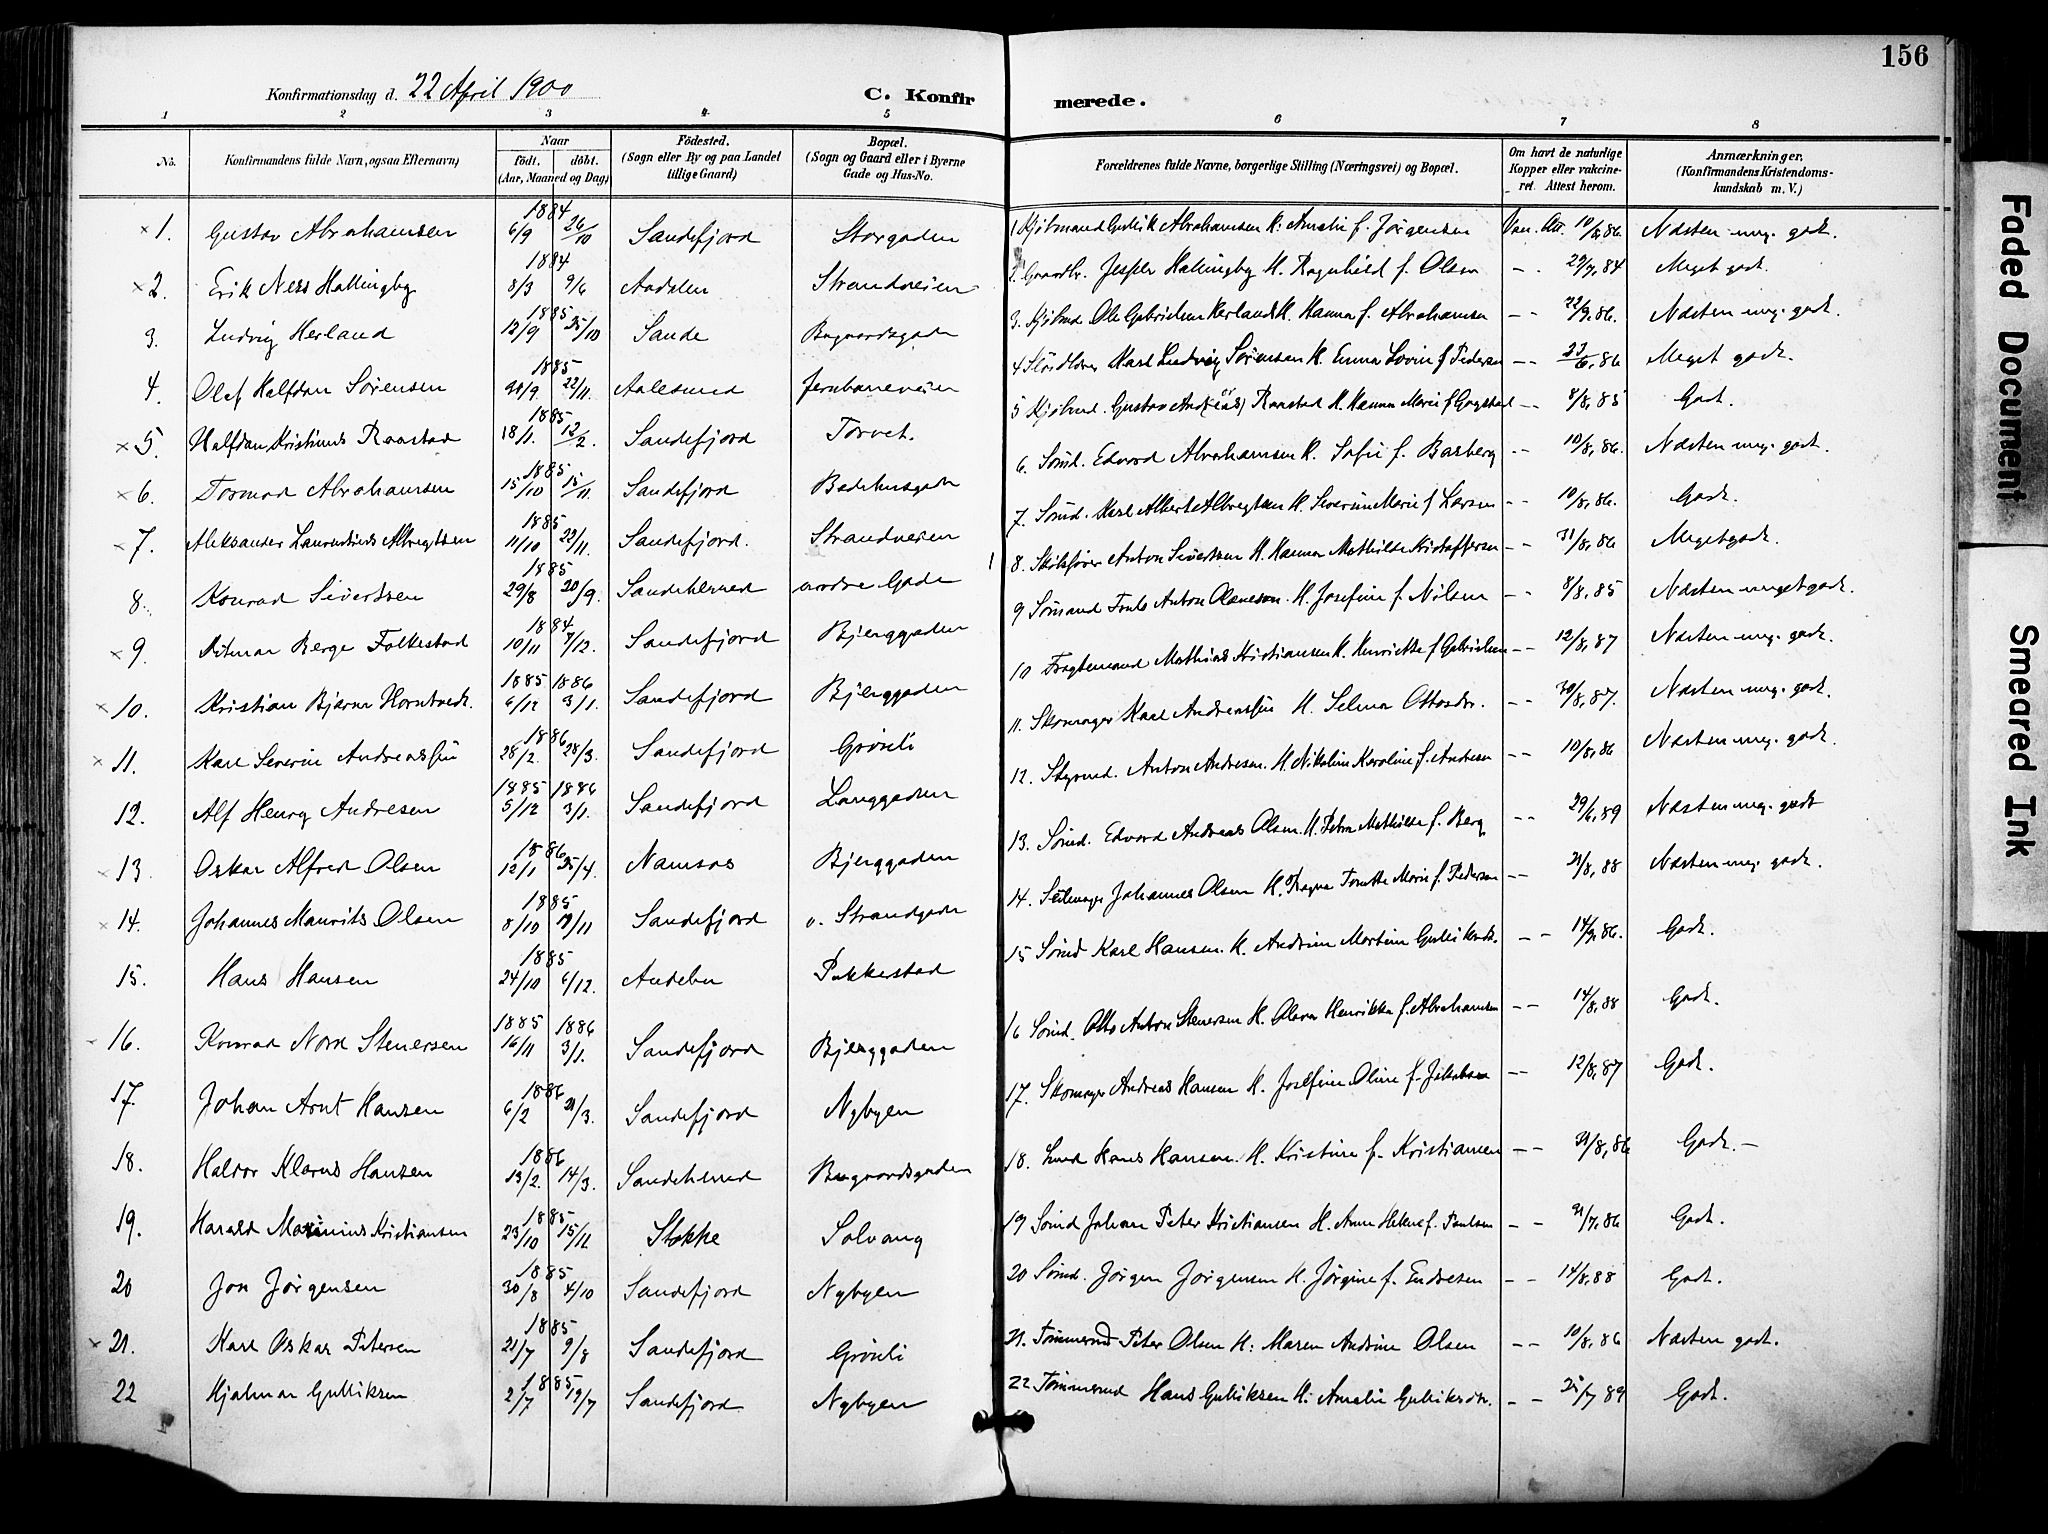 156
Konfirmationsdag d. 22 April 1900 C. Konfirmerede.
1 2 3 4 5 6 7 8
No. Konfirmandens fulde Navn, ogsaa Efternavn) Naar født. døbt. (Aar, Maaned og Dag) Födested. (Sogn eller By og paa Landet tillige Gaard) Bopæl. (Sogn og Gaard eller i Byerne Gade og Hus-No. Forældrenes fulde Navne, borgerlige Stilling (Næringsvei) og Bopæl. Om havt de naturlige Kopper eller vakcineret. Attest herom. Anmærkninger. (Konfirmandens Kristendomskundskab m. V.)
×1. Gustav Abrahamsen 1884 6/9 26/10 Sandefjord Storgaden 1 Kjøbmand Gullik Abrahamsen H. Amalie f. Jørgensen Vac. Att. 10/8, 86 Næsten meg. godt.
×2. Erik Ness Hallingby 1884 8/3 9/6 Aadalen Strandveien 2. Gaardbr. Jesper Hallingby H. Ragnhild f. Olsen - - 29/7, 84 Meget godt.
3. Ludvig Herland 1885 12/9 25/10 Sande Bugaardsgade 3. Kjøbmd Ole Gabrielsen Herland H. Hanna f. Abrahamsen - - 22/9, 86. Næsten meg. godt.
4. Olaf Halfdan Sørensen 1885 20/9 22/11. Aalesund Jernbaneveien 4 Karl Ludvig Sørensen H. Emma Lovise f Pedersen - - 23/6, 86 Meget godt.
×5. Halfdan Kristinus Raastad 1885 18/1. 12/2. Sandefjord Torvet. 5 Kjøbmd. Gustav Andreas Raastad H. Hanna Marie f Gogstad - - 8/8, 85 Godt.
×6. Tormod Abrahamsen 1885 15/10 15/11. Sandefjord Badehusgade 6. Sømd. Edvard Abrahamsen H. Sofie f. Basberg - - 10/8, 86. Næsten meg. godt.
×7. Aleksander Laurentius Albregtsen 1885 11/10 22/11. Sandefjord. Strandveien 7. Sømd. Karl Albert Albregtsen H. Severine Marie f Larsen - - 10/8, 86. Godt.
8. Konrad Sivertsen 1885 29/8 20/9. Sandeherred nordre Gade 8. Anton Sivertsen H. Hanna Mathilde Kristoffersen - - 31/8, 86 Meget godt.
×9. Ditmar Berge Falkestad 1884 10/11 7/12. Sandefjord Bjerggaden 9 Sømand Anton H. Josefine f. Nilsen - - 8/8, 85 Næsten meget godt.
×10. Kristian Bjarne Horntvedt. 1885 1886 6/12 3/1. Sandefjord Bjerggaden 10 Fragtemand Mathias Kristiansen H. Henrikke f Gabrielsen - - 12/8, 87 Næsten meg. godt.
×11. Karl Severin Andreassen 1886 28/2. 28/3. Sandefjord Grønli 11. Skomager Karl Andreassen H. Selma Ottosdtr. - - 30/8, 87. Næsten meg. godt.
12. Alf Henry Andresen 1885 1886 5/12 3/1. Sandefjord Langgaden 12. Styrmd. Anton Andresen. H. Nikoline Karoline f. Andresen - - 10/8, 86 Næsten meg. godt.
×13. Oskar Alfred Olsen 1886 12/1 25/4. Namsos Bjerggaden 13. Sømd. Edvard Andreas Olsen. H. Petra Mathilde f. Berg - - 29/6, 89 Næsten meg. godt
×14. Johannes Maurits Olsen 1885 8/10 Sandefjord v. Strandgade 14. Seilmager Johannes Olsen H. Ragna Marie f. Pedersen - - 21/8, 88 Næsten meg. godt.
15. Hans Hansen 1885 24/10 6/12. Andebu Pukkestad 15 Sømd Karl Hansen. H. Andrine Martine Gulliksdt. - - 14/9, 86. Godt.
16. Konrad Nord Stenersen 1885 1886 16/11 3/1. Sandefjord Bjerggaden 16 Sømd. Otto Anton Stenersen H. Olava Henrikka f. Abrahamsen - - 14/8, 88 Godt.
17. Johan Arnt Hansen 1886 6/2 21/3. Sandefjord Nybyen 17. Skomager Andreas Hansen H. Josefine Oline f. Jakobsen - - 12/8, 87 Godt.
18. Haldor Klaus Hansen 1886 13/2. 14/3. Sandeherred Bugaardsgaden 18. Hans Hansen. H. Kristine f. Kristiansen - - 31/8, 86 Godt. -
19. Harald Maximius Kristiansen 1885 23/10 15/11 Stokke Solvang 19 Sømd Johan Peter Kristiansen H. Anne Helene f. Paulsen - - 21/7, 86 Godt.
20 Jon Jørgensen 1885 30/8 4/10 Sandefjord Nybyen 20 Sømd. Jørgen Jørgensen H. Jørgine f. Endresen - - 14/8, 88 Godt.
×21. Karl Oskar Petersen 1885 21/7 9/8 Sandefjord Grønli 21. Tømmermd Peter Olsen H: Maren Andrine Olsen - - 10/8, 86 Næsten godt.
22 Hjalmar Gulliksen 1885 2/7 19/7 Sandefjord. Nybyen 22 Tømmermd Hans Gulliksen H: Amalie Gulliksdtr. - - 25/7 89 Godt.
Faded Document
Smeared Ink